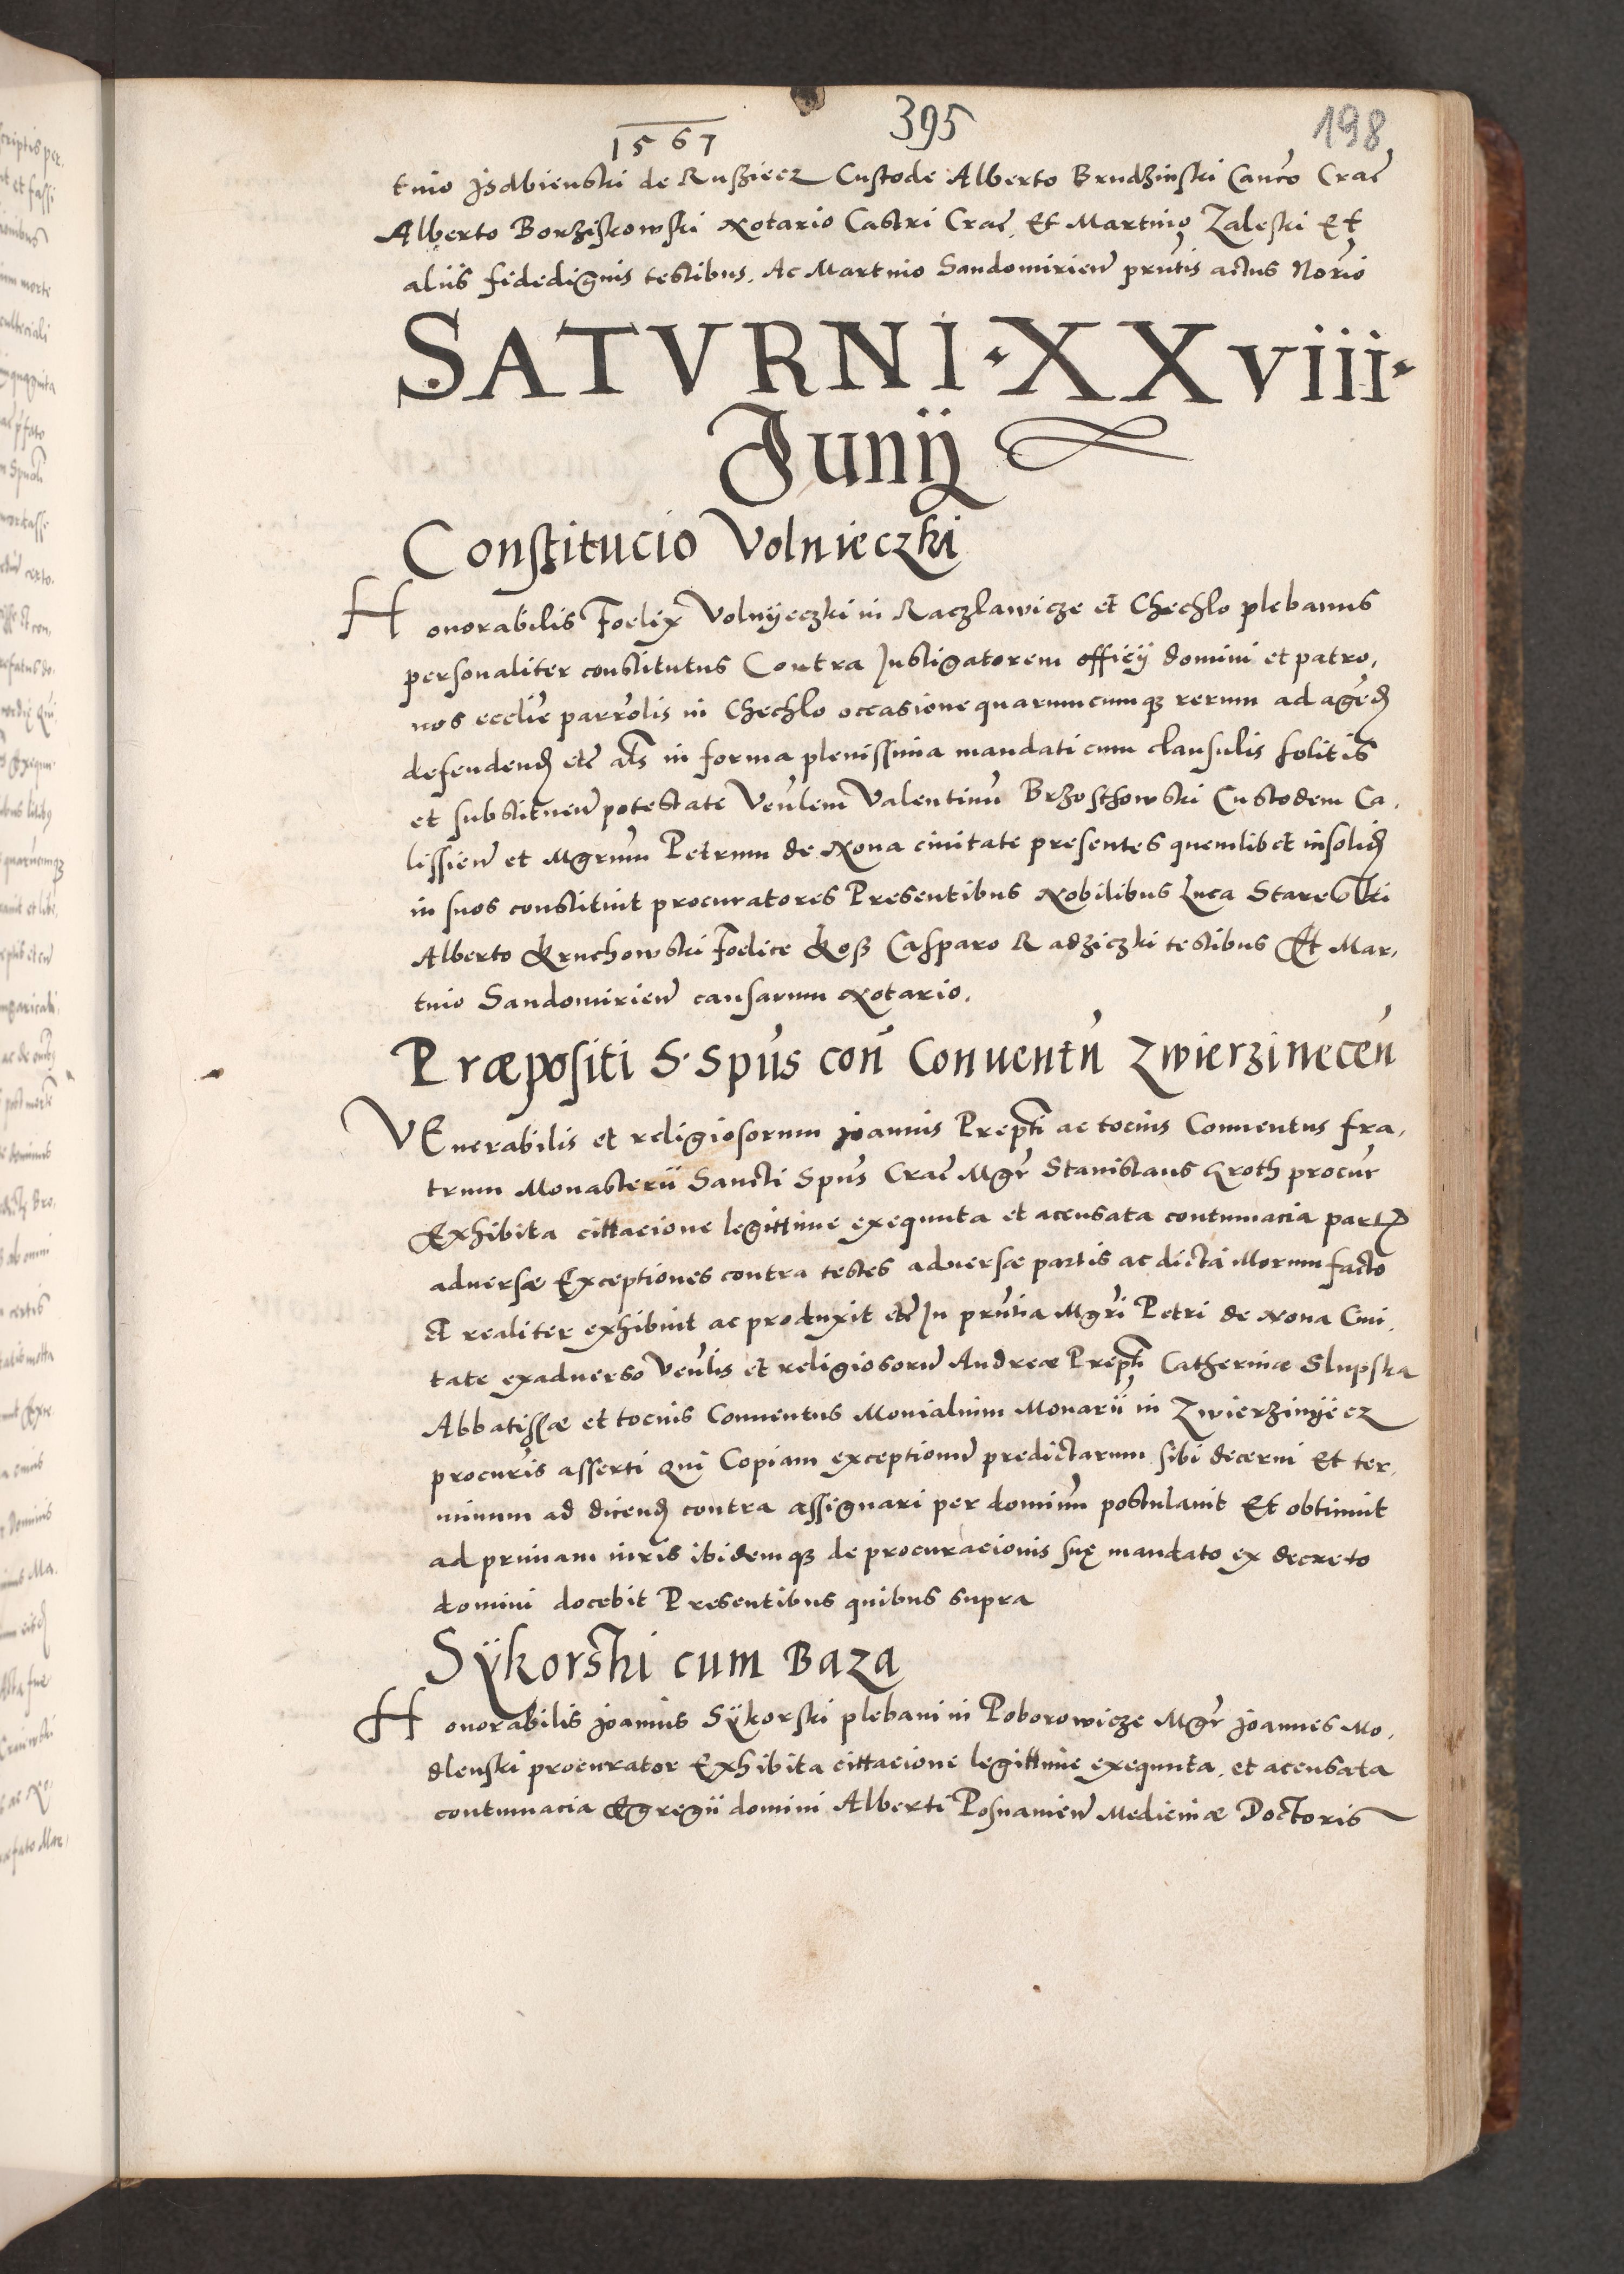 1567
395
198
tino Jsdbienski de Rusziecz Custode Alberto Brudzinski Canco Crac
Alberto Borziskowski Notario Castri Crac. Et Martino Zaleski Et
aliis fidedignis testibus. Ac Martino Sandomirien prntis actus Norio
SATVRNI·XXviii·
Junij
Constitucio Volnieczki
Honorabilis Foelix Volnyeczki in Raczlawicze et Chechlo plebanus
personaliter constitutus Contra Instigatorem officij domini et patro,
nos ecclie parrolis in Chechlo occasione quarumcumq rerum ad agend
defendend etc als in forma plenissima mandati cum clausulis solitis
et substituen potestate Venlem Valentinu Brzosthowski Custodem Ca,
lissien et Mgrum Petrum de Nova civitate presentes quemlibet insolid
in suos constituit procuratores Presentibus Nobilibus Luca Starelski
Alberto Kruchowski Foelice Kosz Casparo Radziczki testibus Et Mar,
tino Sandomirien causarum Notario.
Præpositi S. Spus con Conuentu Zwierzinecen
VEnerabilis et religiosorum joannis Prepti ac tocius Conuentus fra,
trum Monasterii Sancti Spus Crac Mgr Stanislaus Groth procur
Exhibita cittacione legittime exequuta et acensata contumacia partis
adversæ Exceptiones contra testes adversæ partis ac dicta illorum facto
et realiter exhibuit ac produxit etc In prntia Mgri Petri de Nova Civi,
tate exadverso Venlis et religiosoru Andreæ Prepti Catherinæ Slupska
Abbatissæ et tocius Conuentus Monialium Monarii in Zwierzinyecz
procuris asserti Qui Copiam exceptionu predictarum sibi decerni Et ter,
minum ad dicend contra assignari per dominum postulavit Et obtinuit
ad primam iuris ibidemq de procuracionis suę mandato ex decreto
domini docebit Presentibus quibus supra
Sÿkorski cum Baza
Honorabilis joannis Sÿkorski plebani in Poborowicze Mgr joannes Mo,
dlenski procurator Exhibita cittacione legittime exequuta, et acensata
contumacia Egregii domini Alberti Posnanien Medicinæ Doctoris